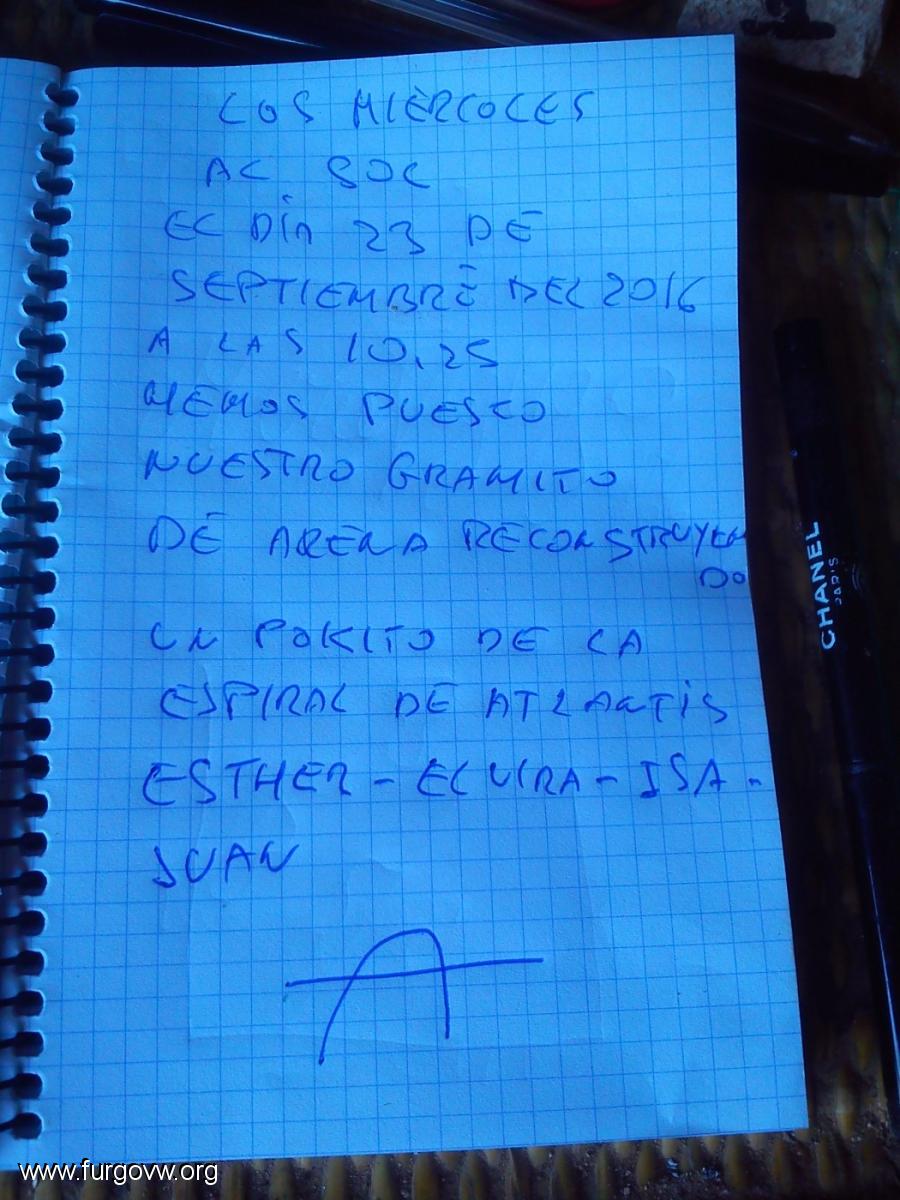 LOS MIÉRCOLES
AL SOL
EL DÍA 23 DE
SEPTIEMBRE DEL 2016
A LAS 10.25
HEMOS PUESTO
NUESTRO GRANITO
DE ARENA RECONSTRUYEN
DO
UN POKITO DE LA
ESPIRAL DE ATLANTIS
ESTHER - ELVIRA - ISA -
JUAN
CHANEL
PARIS
www.furgovw.org